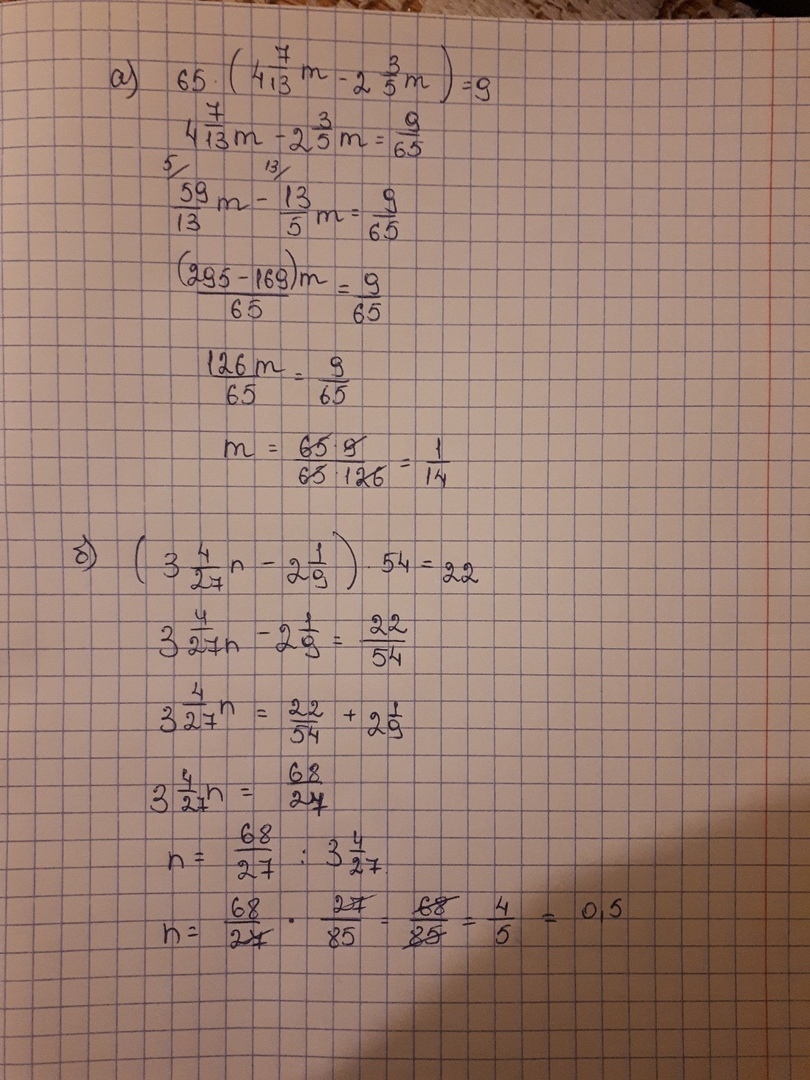 а) 65 · (4 7/13 m - 2 3/5 m) = 9
4 7/13 m - 2 3/5 m = 9/65
5/ 13/
59/13 m - 13/5 m = 9/65
(295 - 169)m/65 = 9/65
126m/65 = 9/65
m = 65·9/65·126 = 1/14
б) (3 4/27 n - 2 1/9) · 54 = 22
3 4/27 n - 2 1/9 = 22/54
3 4/27 n = 22/54 + 2 1/9
3 4/27 n = 68/27
n = 68/27 : 3 4/27
n = 68/27 · 27/85 = 68/85 = 4/5 = 0,5